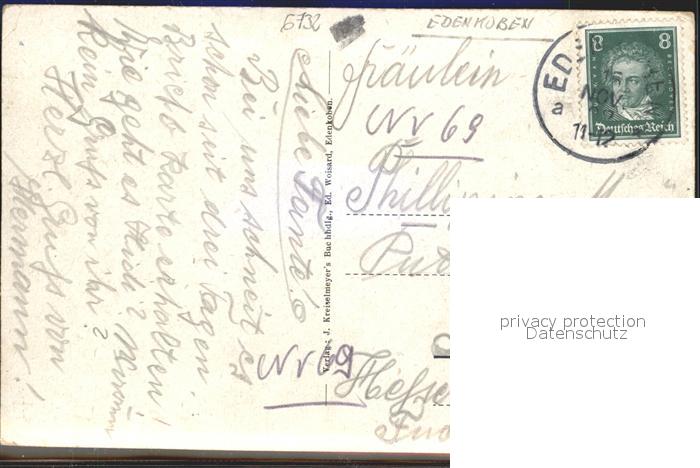 6732
EDENKOBEN
8 8
BEETHOVEN
Deutsches Reich
ED
NOV
a
11-12
Fräulein
NV 69
Phillipine
Put
Hesse
Verlag: J. Kreiselmeyer's Buchhdlg., Ed. Woisard, Edenkoben.
Liebe Tante!
Bei uns schneit es
schon seit drei Tagen
Brief Karte erhalten!
Wie geht es Heidi? Warum
kein Gruß von ihr?
Herzl. Gruß von
Hermann!
NV 69
privacy protection
Datenschutz